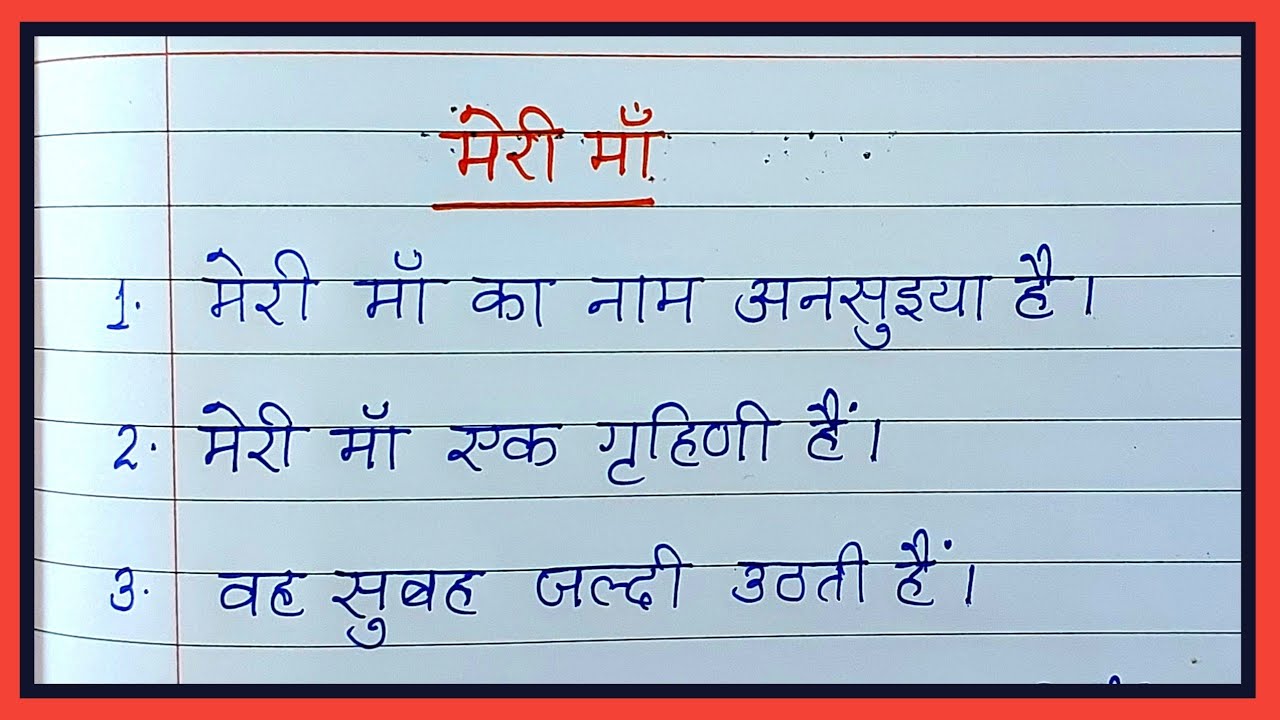 मेरी माँ
1. मेरी माँ का नाम अनसुइया है।
2. मेरी माँ एक गृहिणी हैं।
3. वह सुबह जल्दी उठती हैं।